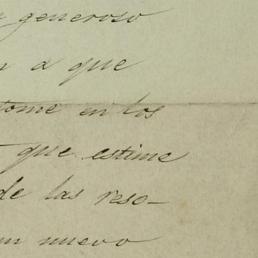 generoso
a que
tome en los
que estime
de las reso-
un nuevo